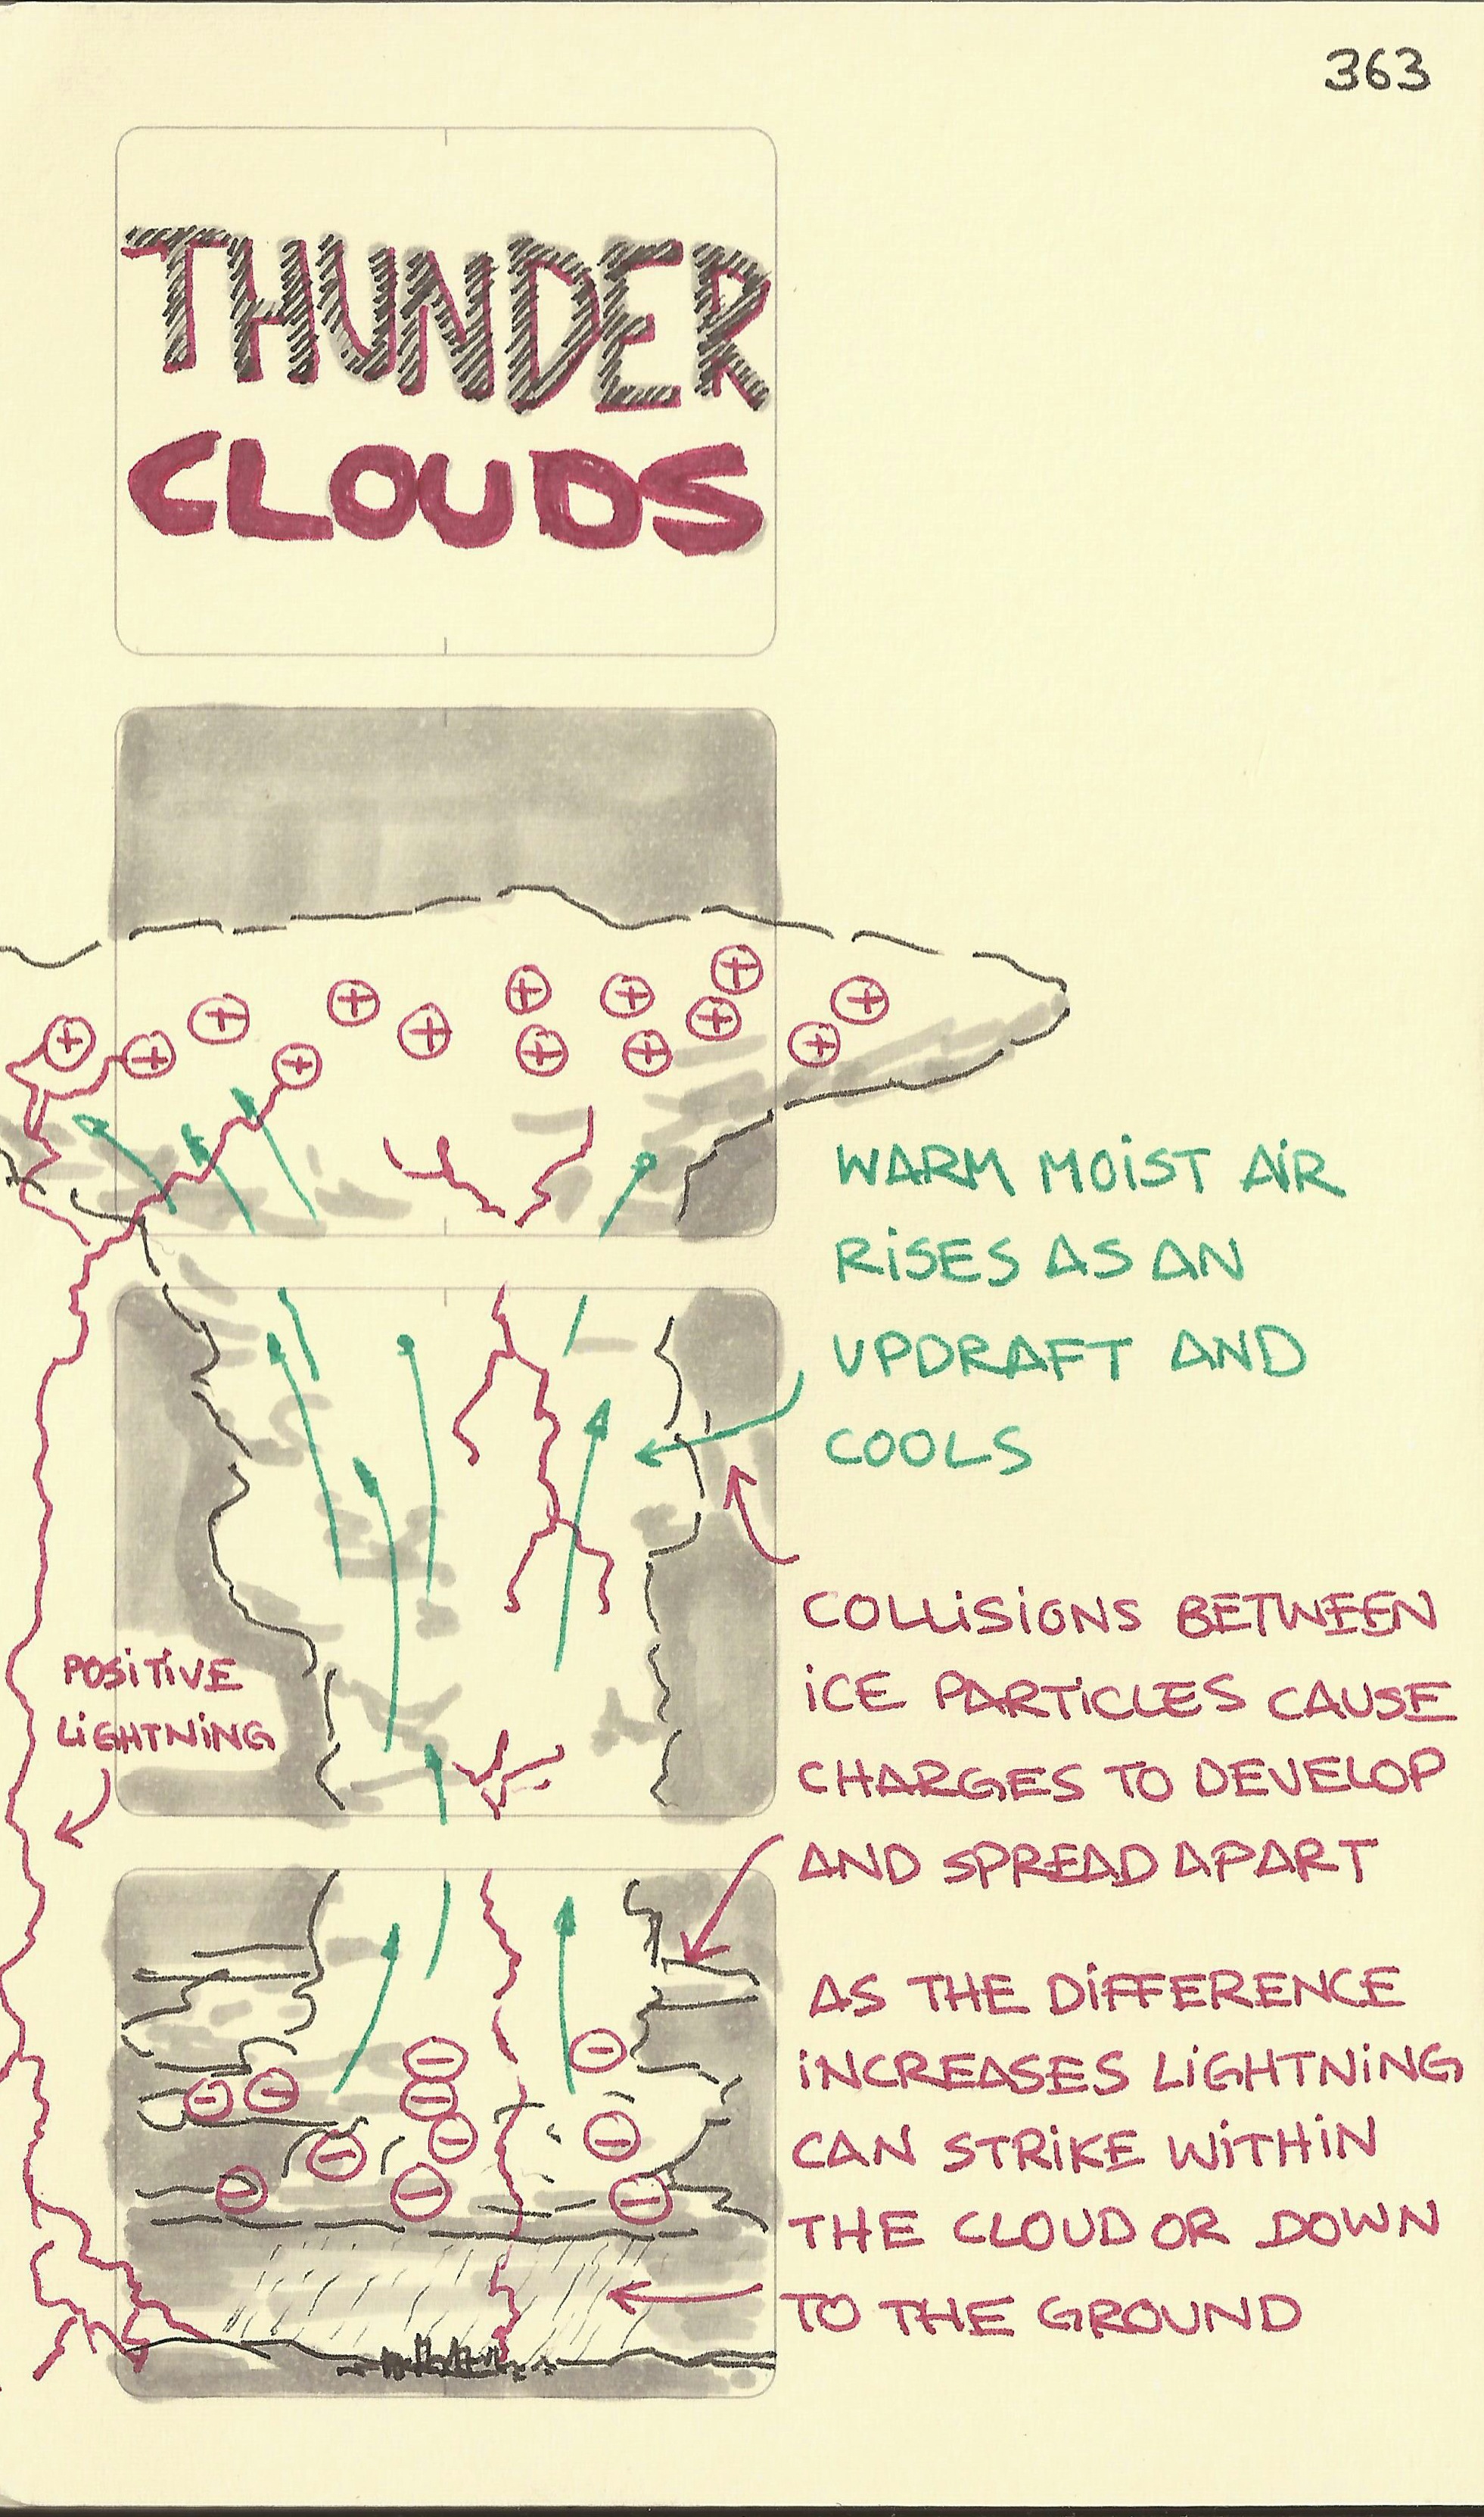 363
THUNDER
CLOUDS
WARM MOIST AIR
RISES AS AN
UPDRAFT AND
COOLS
COLLISIONS BETWEEN
ICE PARTICLES CAUSE
CHARGES TO DEVELOP
AND SPREAD APART
POSITIVE
LIGHTNING
AS THE DIFFERENCE
INCREASES LIGHTNING
CAN STRIKE WITHIN
THE CLOUD OR DOWN
TO THE GROUND